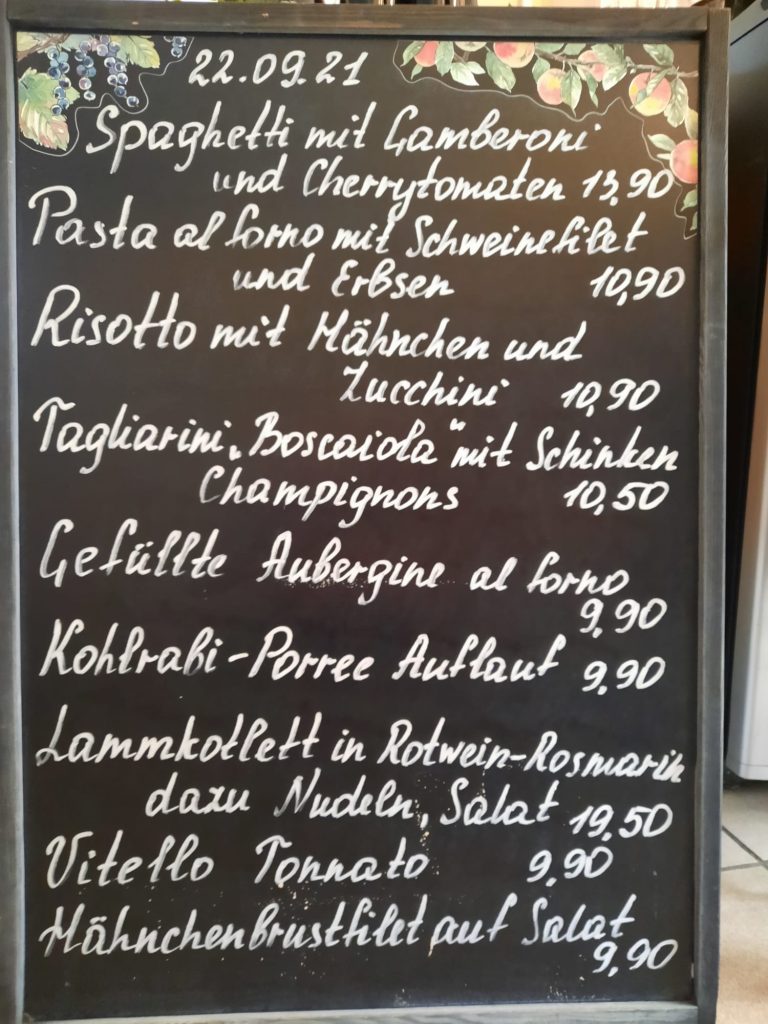 22.09.21
Spaghetti mit Gamberoni
und Cherrytomaten 13,90
Pasta al forno mit Schweinefilet
und Erbsen 10,90
Risotto mit Hähnchen und
Zucchini 10,90
Tagliarini „Boscaiola" mit Schinken
Champignons 10,50
Gefüllte Aubergine al forno
9,90
Kohlrabi-Porree Auflauf 9,90
Lammkotlett in Rotwein-Rosmarin
dazu Nudeln, Salat 19,50
Vitello Tonnato 9,90
Hähnchenbrustfilet auf Salat
9,90